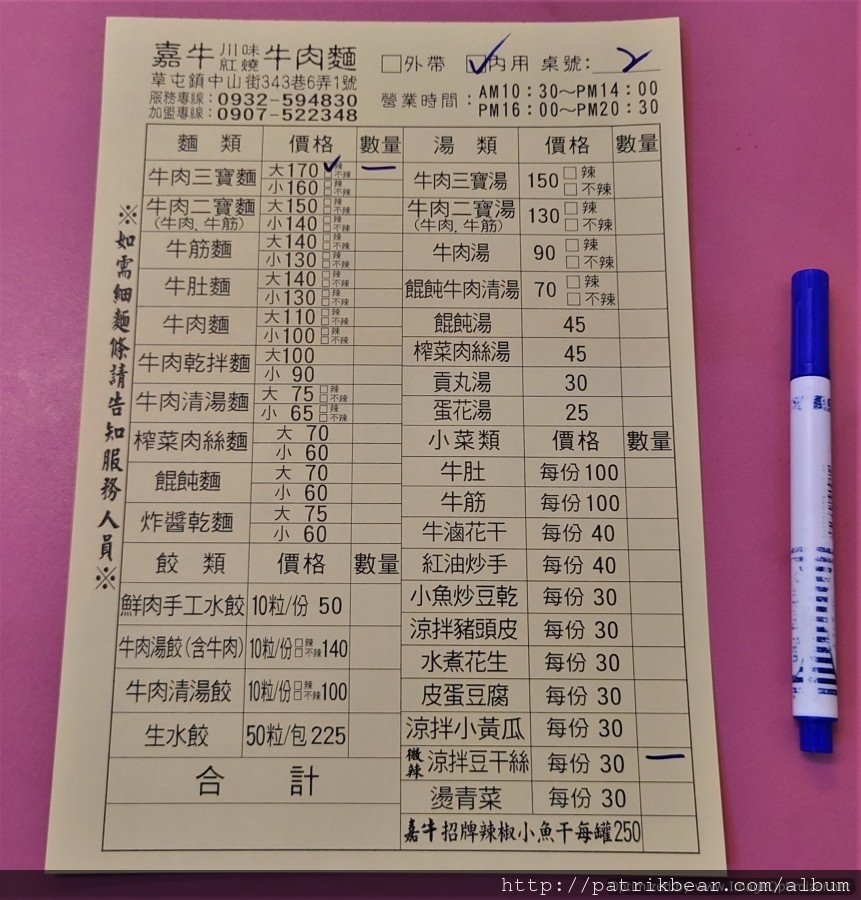 嘉牛 川味紅燒 牛肉麵 □外帶 ☑內用 桌號:2
草屯鎮中山街343巷6弄1號
服務專線:0932-594830
加盟專線:0907-522348
營業時間:AM10:30～PM14:00
PM16:00～PM20:30
※如需細麵條請告知服務人員※
麵類 價格 數量
牛肉三寶麵 大170 ☑辣 □不辣 一
小160 □辣 □不辣
牛肉二寶麵 大150 □辣 □不辣
(牛肉,牛筋) 小140 □辣 □不辣
牛筋麵 大140 □辣 □不辣
小130 □辣 □不辣
牛肚麵 大140 □辣 □不辣
小130 □辣 □不辣
牛肉麵 大110 □辣 □不辣
小100 □辣 □不辣
牛肉乾拌麵 大100
小 90
牛肉清湯麵 大 75 □辣 □不辣
小 65 □辣 □不辣
榨菜肉絲麵 大 70
小 60
餛飩麵 大 70
小 60
炸醬乾麵 大 75
小 60
餃類 價格 數量
鮮肉手工水餃 10粒/份 50
牛肉湯餃(含牛肉) 10粒/份 □辣 □不辣 140
牛肉清湯餃 10粒/份 □辣 □不辣 100
生水餃 50粒/包 225
合計
湯類 價格 數量
牛肉三寶湯 150 □辣 □不辣
牛肉二寶湯 130 □辣 □不辣
(牛肉,牛筋)
牛肉湯 90 □辣 □不辣
餛飩牛肉清湯 70 □辣 □不辣
餛飩湯 45
榨菜肉絲湯 45
貢丸湯 30
蛋花湯 25
小菜類 價格 數量
牛肚 每份100
牛筋 每份100
牛滷花干 每份 40
紅油炒手 每份 40
小魚炒豆乾 每份 30
涼拌豬頭皮 每份 30
水煮花生 每份 30
皮蛋豆腐 每份 30
涼拌小黃瓜 每份 30
微辣 涼拌豆干絲 每份 30 一
燙青菜 每份 30
嘉牛招牌辣椒小魚干每罐250
http://patrikbear.com/album